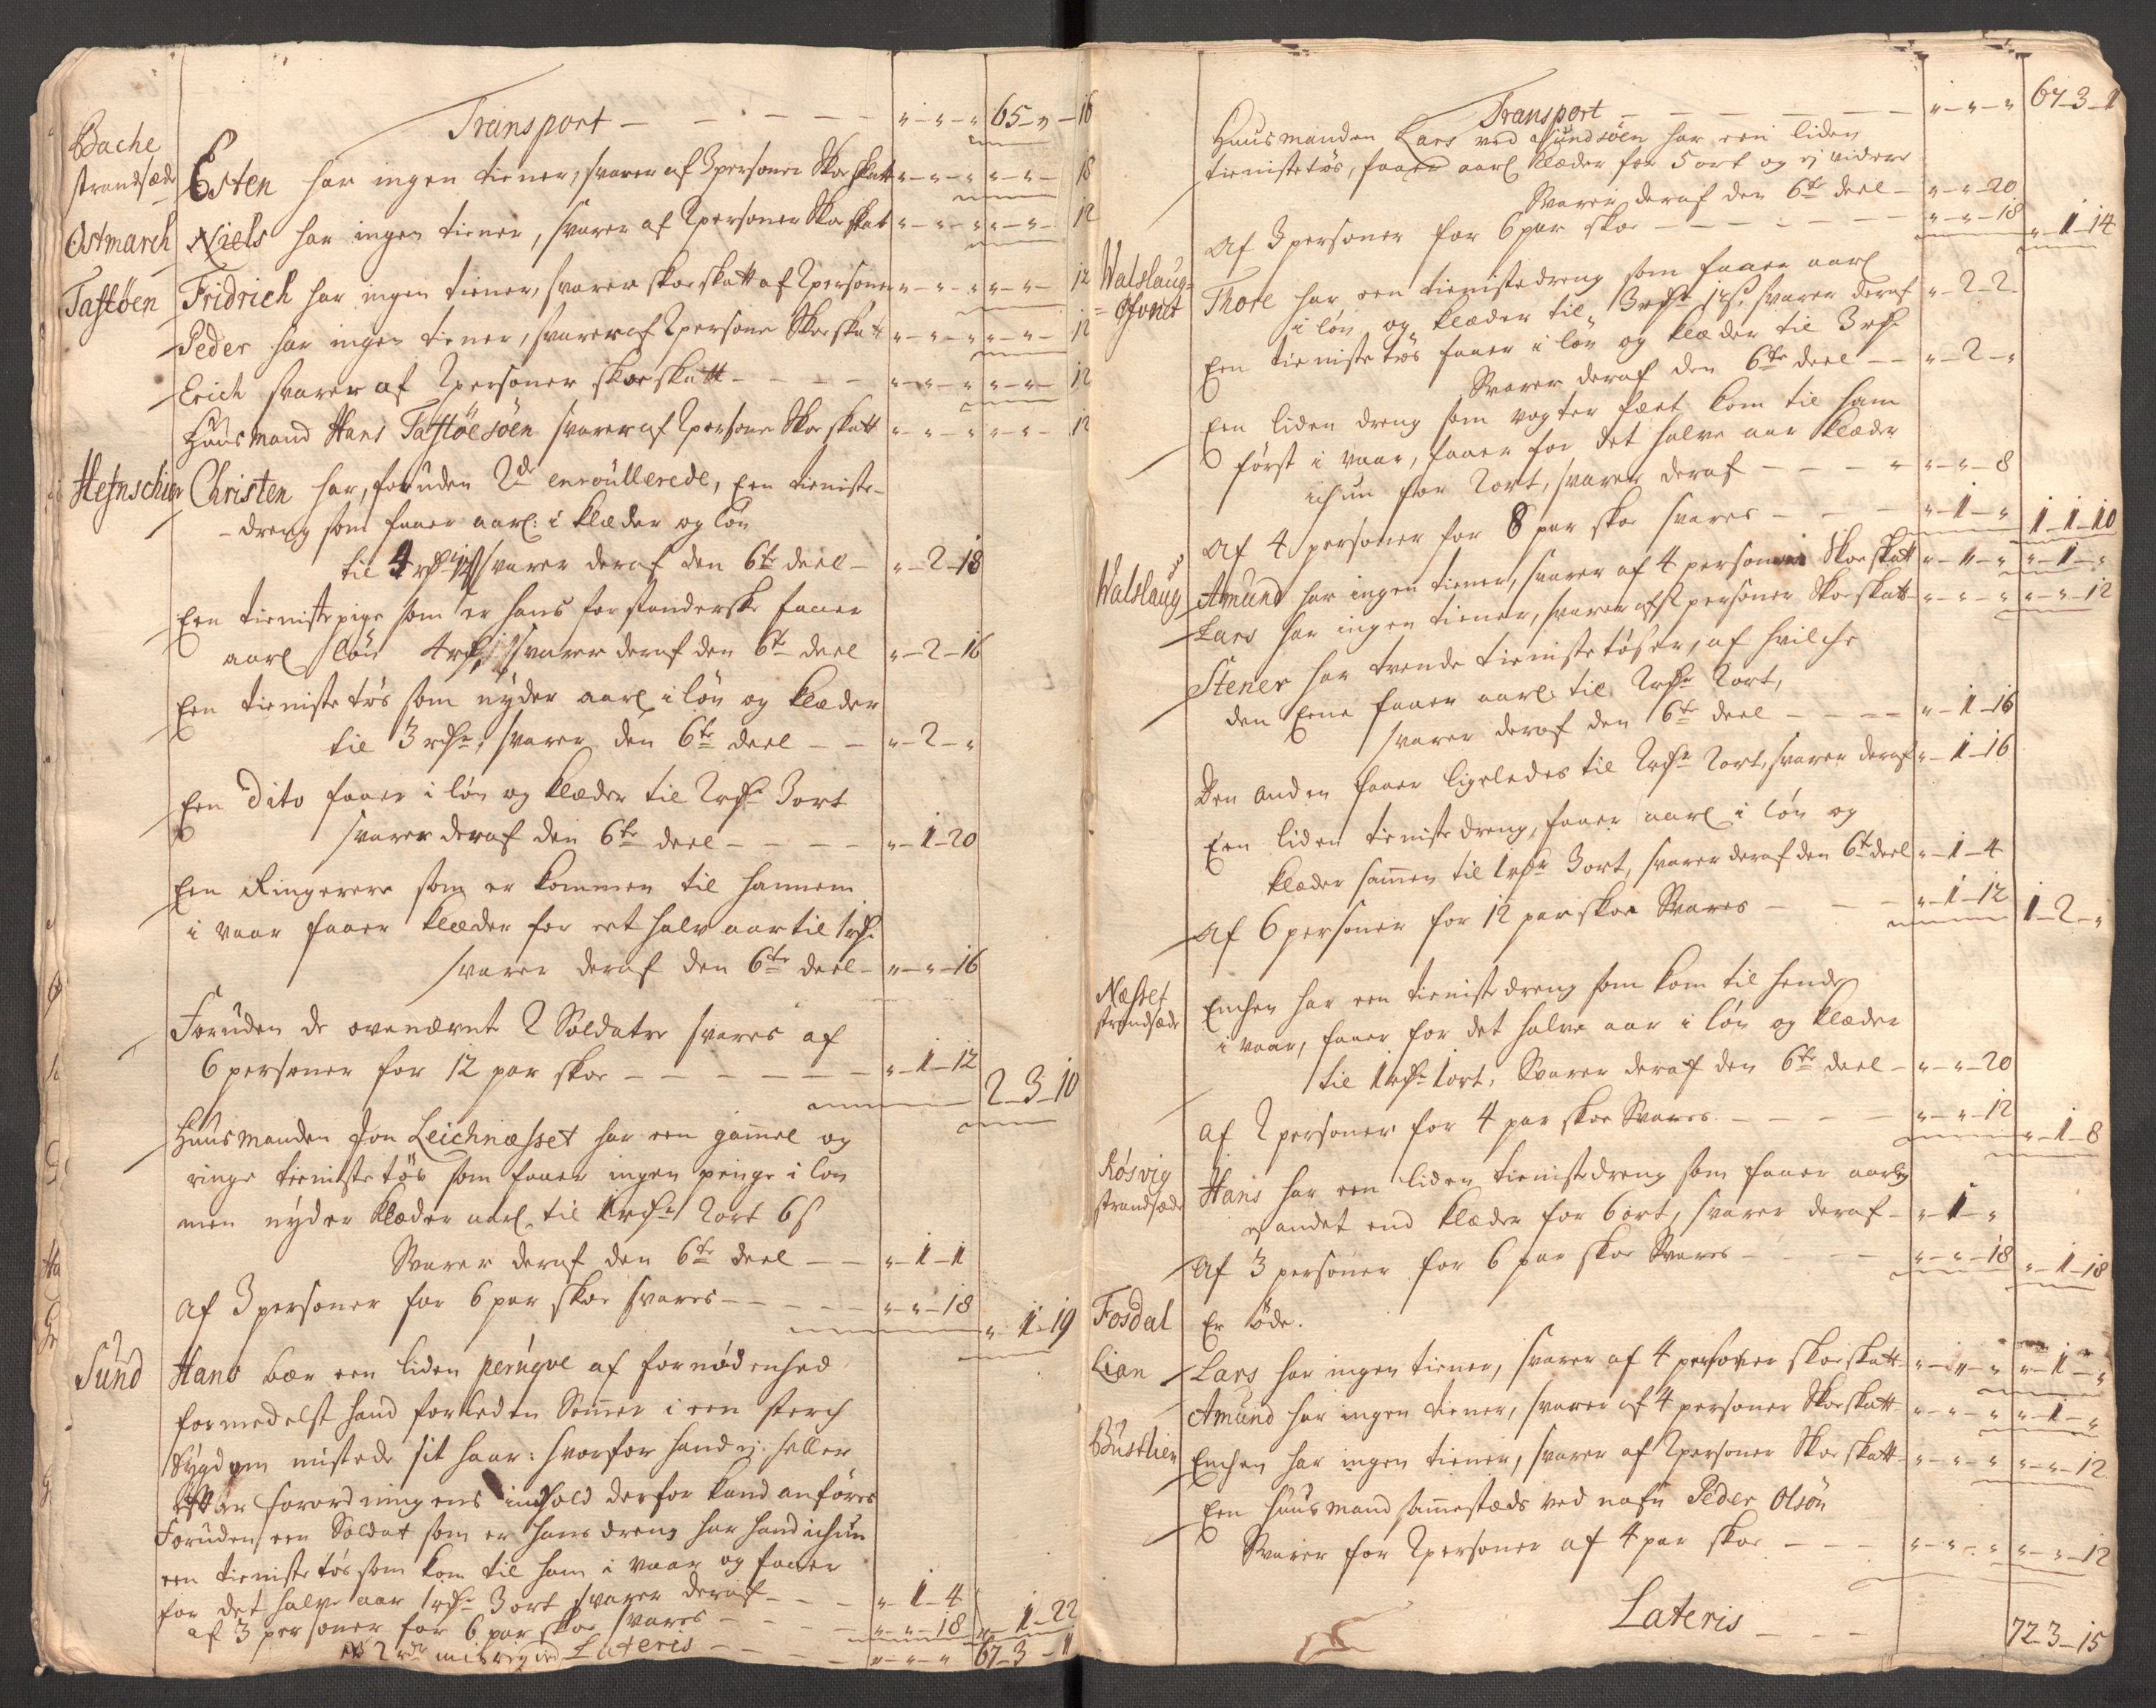 Transport – – – – – „-„-„ 65-„-16
Bache
strandsæde Esten har ingen tiener, svarer af 3 personer Skoeskatt „-„-„ „-„-18
Ostmarch Niels har ingen tiener, svarer af 2 personer Skoeskatt „-„-„ „-„-12
Taftöen Fridrich har ingen tiener, svarer skoeskatt af 2 personer „-„-„ „-„-12
Peder har ingen tiener, svarer af 2 persone Skoeskatt „-„-„ „-„-12
Erich svarer af 2 personer skoeskatt – – – – „-„-„ „-„-12
Huusmand Hans Taftöesöen svarer af 2 persone Skoeskatt „-„-„ „-„-12
Christen har, foruden 2de enroullerede, Een tieniste-
dreng som faaer aarl: i klæder og lön
til 4 rdr svarer deraf den 6te deel – „-2-18
Een tienistepige som er hans forstanderske faaer
aarl lön 4 rdr svarer deraf den 6te deel „-2-16
Een tienistetös som nyder aarl i lön og klæder
til 3 rdr: svarer den 6te deel – – „-2-„
Een dito faaer i lön og klæder til 2 rdr 3 ort
svarer deraf den 6te deel – – – – „-1-20
Een Ringerere som er kommen til hannem
i vaar faaer klæder for eet halv aar til 1 rdr
svarer deraf den 6te deel – „-„-16
Foruden de ovennævnte 2 Soldater svares af
6 personer for 12 par skoe – – – – – – „-1-12 2-3-10
Huusmanden Jon Leichnæsset har een gamel og
ringe tienistetös som faaer ingen penge i lön
men nyder klæder aarl til 1 rdr 2 ort 6 s
Svarer deraf den 6te deel – – „-1-1
Af 3 personer for 6 par skoe svares – – – – „-„-18 „-1-19
Sund Hans bær een liden perúqve af fornödenhed
formedelst hand forleden Somer i een sterch
Sygdom mistede sit haar: hvorfor hand ej heller
efter forordningens indhold derfor kand anföres
Foruden een Soldat som er hans dreng har hand ichun
een tienistetös som kom til ham i vaar og faaer
for det halve aar 1 rdr 3 ort svarer deraf – – – „-1-4
af 3 personer for 6 par skoe svares – – „-„-18 „-1-22
Lateris – – – – „-„-„ 67-3-11
Transport – – – – – – „-„-„ 67-3-11
Huusmanden Lars ved Sundsöen har een liden
tienistetös, faaer aarl klæder for 5 ort og ej videre
Svarer deraf den 6te deel – „-„-20
Af 3 personer for 6 par skoe – – – – – „-„-18 „-1-14
Walslaug- Thore har een tienistedreng som faaer aarl
i lön og klæder til 3 rdr svarer deraf „-2-2
Een tienistetös faaer i lön og klæder til 3 rdr
Svarer deraf den 6te deel – – „-2-„
Een liden dreng som vogter fæet kom til ham
först i vaar, faaer for det halve aar klæder
ichun for 2 ort, svarer deraf – – – – „-„-8
Af 4 personer for 8 par skoe svares – – – „-1-„ 1-1-10
Walslaug Amund har ingen tiener, svarer af 4 personer Skoeskatt „-„-„ „-1-„
Lars har ingen tiener, svarer af 2 personer Skoeskatt „-„-„ „-„-12
Stener har tvende tienistetöser, af hvilche
den Eene faaer aarl: til 2 rdr 2 ort,
svarer deraf den 6te deel – – – – „-1-16
Den anden faaer ligeledes til 2 rdr 2 ort, svarer deraf „-1-16
Een liden tienistedreng, faaer aarl i lön og
klæder samen til 1 rdr 3 ort, svarer deraf den 6te deel „-1-4
Af 6 personer for 12 par skoe Svares – – – „-1-12 1-2-„
Næsset
strandsæde Enchen har een tienistedreng som kom til hende
i vaar, faaer for det halve aar i lön og klæder
til 1 rdr 1 ort, Svarer deraf den 6te deel – „-„-20
Af 2 personer for 4 par skoe Svares – – – – „-„-12 „-1-8
Rösvig
strandsæde Hans har een liden tienistedreng som faaer aarl ej
andet end klæder for 6 ort, svarer deraf – „-1-„
Af 3 personer for 6 par skoe Svares – – – – „-„-18 „-1-18
Fosdal Er öde.
Lian Lars har ingen tiener, svarer af 4 personer skoeskatt „-„-„ „-1-„
Amund har ingen tiener, svarer af 4 personer Skoeskatt „-„-„ „-1-„
Bustlien Enchen har ingen tiener, svarer af 2 personer Skoeskatt „-„-„ „-„-12
Een huusmand samestæds ved nafn Peder Olsön
Svarer for 2 personer af 4 par skoe – – – „-„-„ „-„-12
Lateris – – – 72-3-15